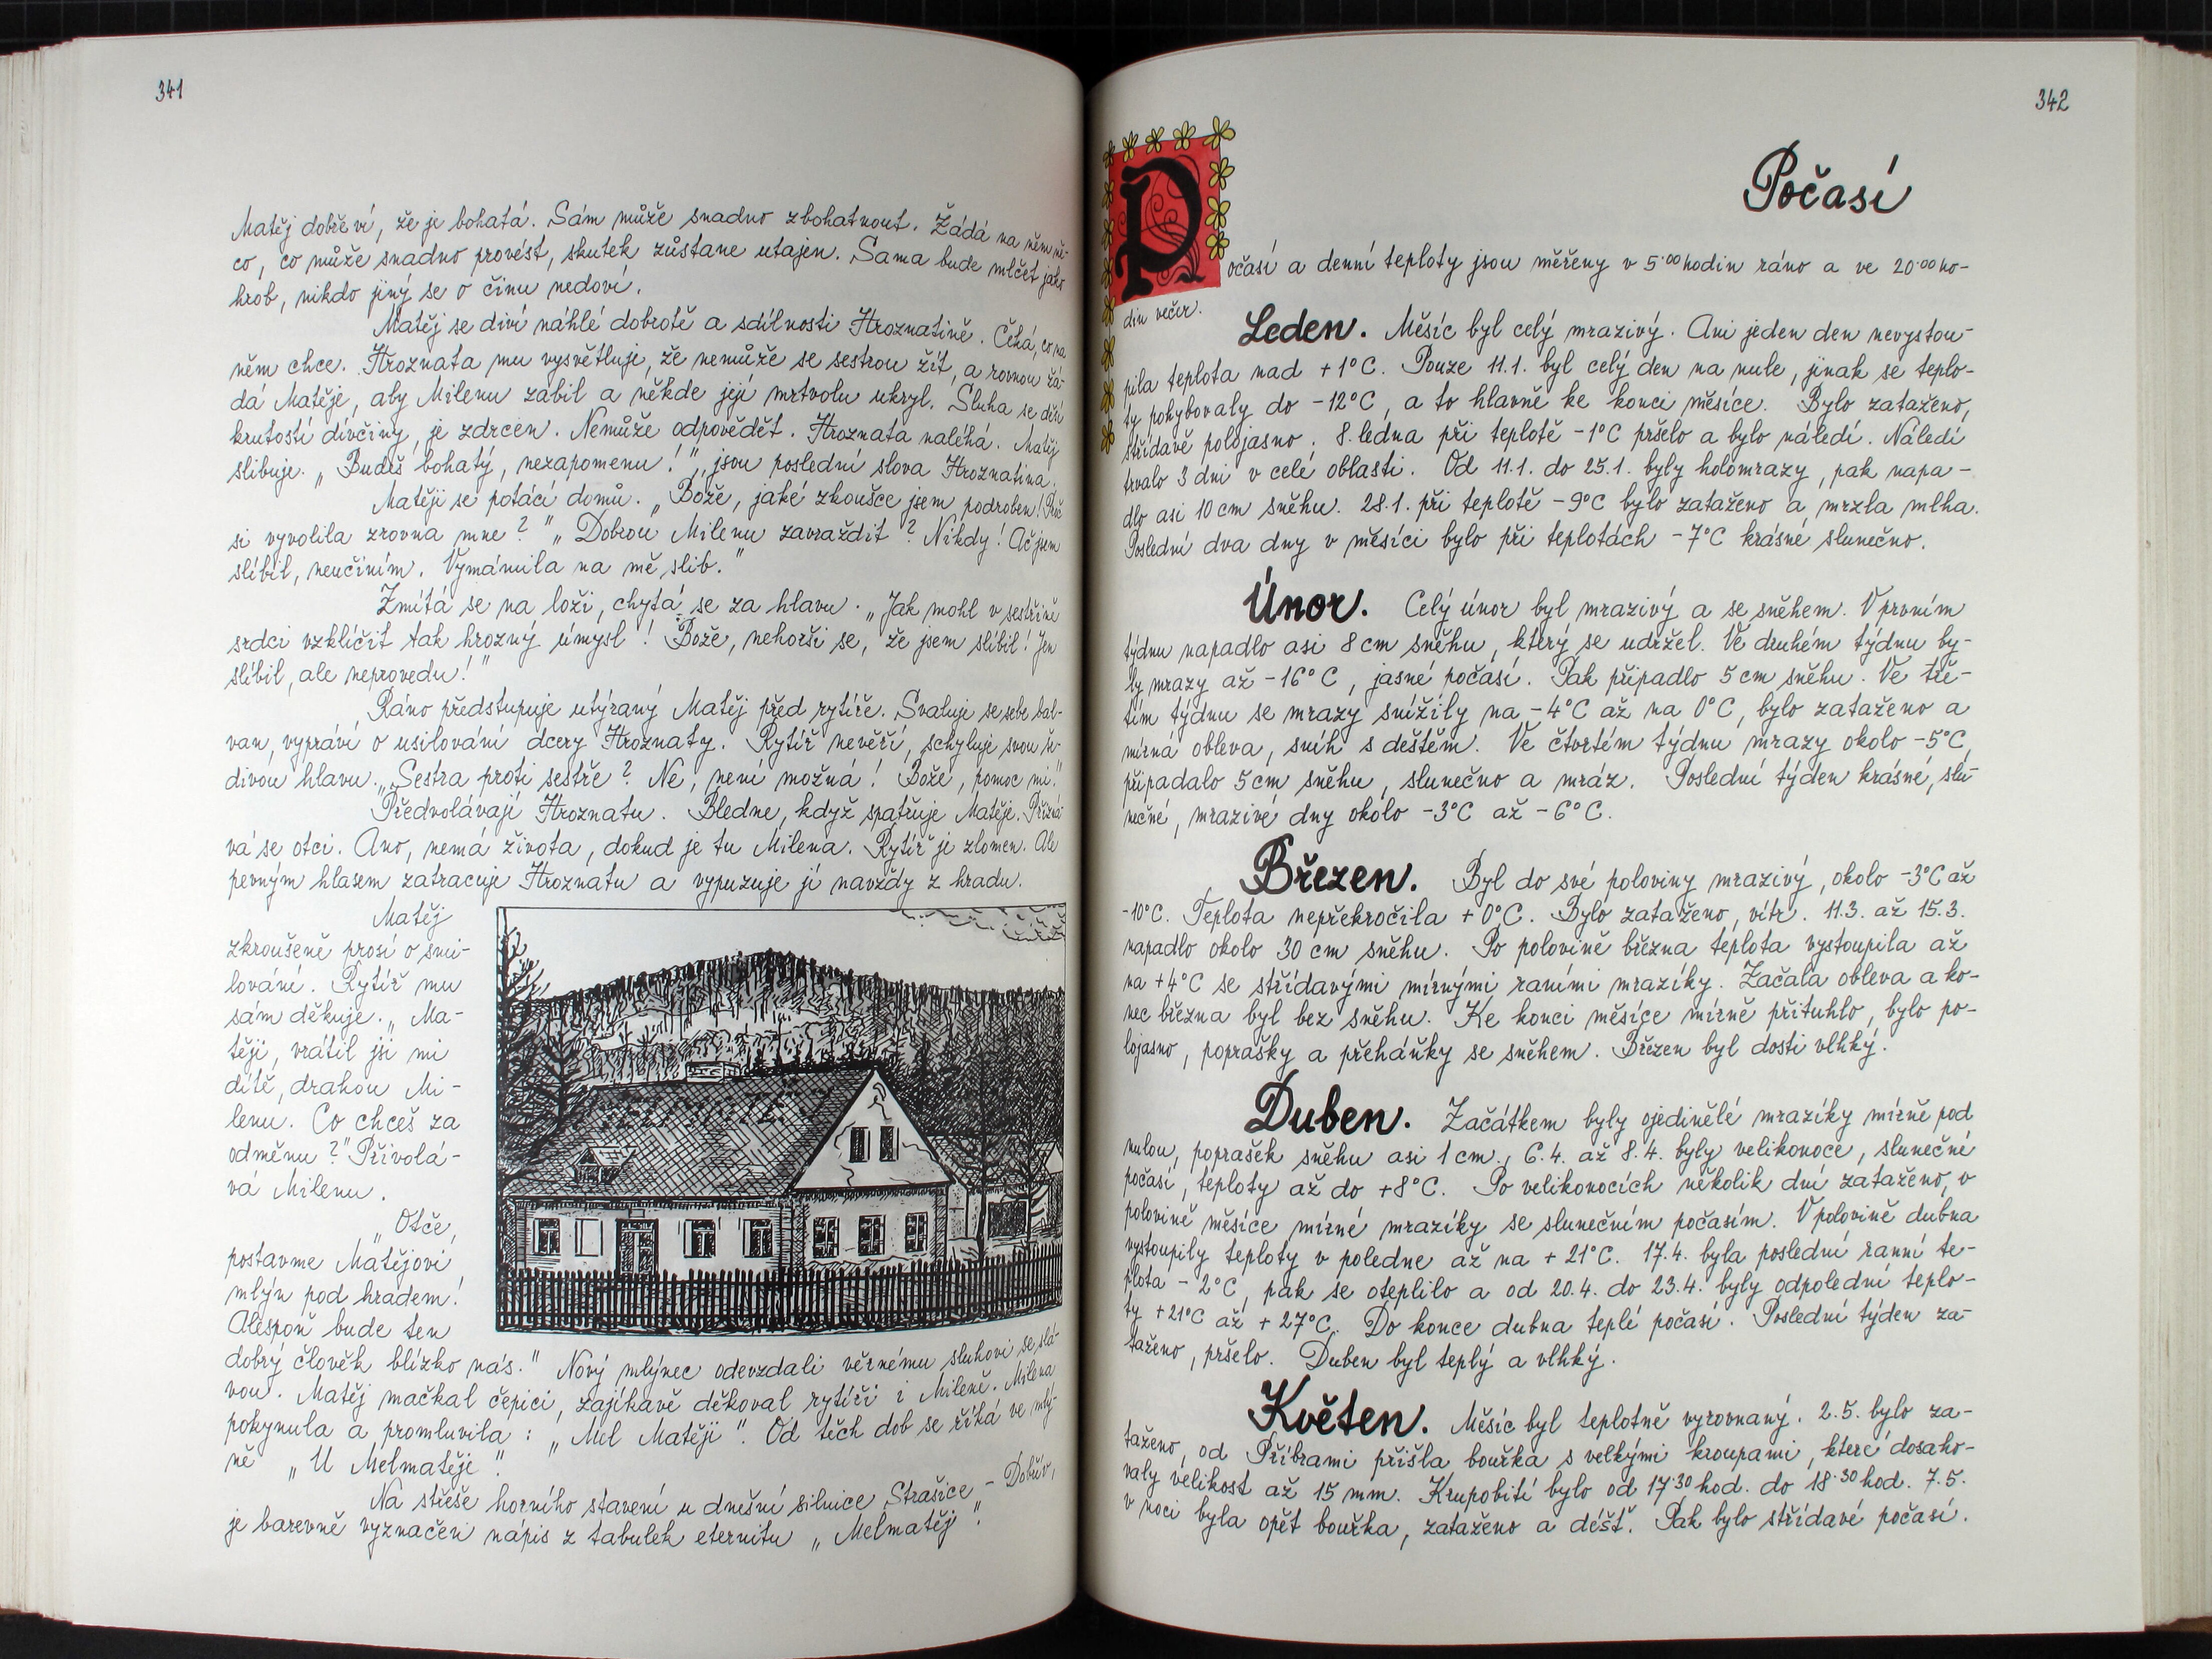 341
Matěj dobře ví, že je bohatá. Sám může snadno zbohatnout. Žádá na něm ně-
co, co může snadno provést, skutek zůstane utajen. Sama bude mlčet jako
hrob, nikdo jiný se o činu nedoví.
Matěj se diví náhlé dobrotě a sdílnosti Hroznatině. Čeká, co na
něm chce. Hroznata mu vysvětluje, že nemůže se sestrou žít, a rovnou žá-
dá Matěje, aby Milenu zabil a někde její mrtvolu ukryl. Sluha se děsí
krutosti dívčiny, je zdrcen. Nemůže odpovědět. Hroznata naléhá. Matěj
slibuje. „Budeš bohatý, nezapomenu!", jsou poslední slova Hroznatina.
Matěji se potácí domů. „Bože, jaké zkoušce jsem podroben! Proč
si vyvolila zrovna mne?" „Dobrou Milenu zavraždit? Nikdy! Ač jsem
slíbil, neučiním. Vymámila na mě slib."
Zmítá se na loži, chytá se za hlavu. „Jak mohl v sestřině
srdci vzklíčit tak hrozný úmysl! Bože, nehorši se, že jsem slíbil! Jen
slíbil, ale neprovedu!"
Ráno předstupuje utýraný Matěj před rytíře. Svaluje se sebe bal-
van, vypráví o usilování dcery Hroznaty. Rytíř nevěří, schyluje svou še-
divou hlavu. „Sestra proti sestře? Ne, není možná! Bože, pomoc mi."
Předvolávají Hroznatu. Bledne, když spatřuje Matěje. Přizná-
vá se otci. Ano, nemá života, dokud je tu Milena. Rytíř je zlomen. Ale
pevným hlasem zatracuje Hroznatu a vypuzuje ji navždy z hradu.
Matěj
zkroušeně prosí o smi-
lování. Rytíř mu
sám děkuje. „Ma-
těji, vrátil jsi mi
dítě, drahou Mi-
lenu. Co chceš za
odměnu?" Přivolá-
vá Milenu.
„Otče,
postavme Matějovi
mlýn pod hradem!
Alespoň bude ten
dobrý člověk blízko nás." Nový mlýnec odevzdali věrnému sluhovi se slá-
vou. Matěj mačkal čepici, zajíkavě děkoval rytíři i Mileně. Milena
pokynula a promluvila: „Mel Matěji". Od těch dob se říká ve mlý-
ně „U Melmatěje".
Na střeše horního stavení u dnešní silnice Strašice - Dobřív,
je barevně vyznačen nápis z tabulek eternitu „Melmatěj".
342
Počasí
Počasí a denní teploty jsou měřeny v 5.00 hodin ráno a ve 20.00 ho-
din večer.
Leden. Měsíc byl celý mrazivý. Ani jeden den nevystou-
pila teplota nad +1°C. Pouze 11.1. byl celý den na nule, jinak se teplo-
ty pohybovaly do -12°C, a to hlavně ke konci měsíce. Bylo zataženo,
střídavě polojasno. 8. ledna při teplotě -1°C pršelo a bylo náledí. Náledí
trvalo 3 dni v celé oblasti. Od 11.1. do 25.1. byly holomrazy, pak napa-
dlo asi 10 cm sněhu. 28.1. při teplotě -9°C bylo zataženo a mrzla mlha.
Poslední dva dny v měsíci bylo při teplotách -7°C krásné slunečno.
Únor. Celý únor byl mrazivý a se sněhem. V prvním
týdnu napadlo asi 8 cm sněhu, který se udržel. Ve druhém týdnu by-
ly mrazy až -16°C, jasné počasí. Pak připadlo 5 cm sněhu. Ve tře-
tím týdnu se mrazy snížily na -4°C až na 0°C, bylo zataženo a
mírná obleva, sníh s deštěm. Ve čtvrtém týdnu mrazy okolo -5°C,
připadalo 5 cm sněhu, slunečno a mráz. Poslední týden krásné, slu-
nečné, mrazivé dny okolo -3°C až -6°C.
Březen. Byl do své poloviny mrazivý, okolo -3°C až
-10°C. Teplota nepřekročila +0°C. Bylo zataženo, vítr. 11.3. až 15.3.
napadlo okolo 30 cm sněhu. Po polovině března teplota vystoupila až
na +4°C se střídavými mírnými raními mrazíky. Začala obleva a ko-
nec března byl bez sněhu. Ke konci měsíce mírně přituhlo, bylo po-
lojasno, poprašky a přeháňky se sněhem. Březen byl dosti vlhký.
Duben. Začátkem byly ojedinělé mrazíky mírně pod
nulou, poprašek sněhu asi 1 cm. 6.4. až 8.4. byly velikonoce, slunečné
počasí, teploty až do +8°C. Po velikonocích několik dní zataženo, v
polovině měsíce mírné mrazíky se slunečním počasím. V polovině dubna
vystoupily teploty v poledne až na +21°C. 17.4. byla poslední ranní te-
plota -2°C, pak se oteplilo a od 20.4. do 23.4. byly odpolední teplo-
ty +21°C až +27°C. Do konce dubna teplé počasí. Poslední týden za-
taženo, pršelo. Duben byl teplý a vlhký.
Květen. Měsíc byl teplotně vyrovnaný. 2.5. bylo za-
taženo, od Příbrami přišla bouřka s velkými kroupami, které dosaho-
valy velikost až 15 mm. Krupobití bylo od 17.30 hod. do 18.30 hod. 7.5.
v noci byla opět bouřka, zataženo a déšť. Pak bylo střídavé počasí.